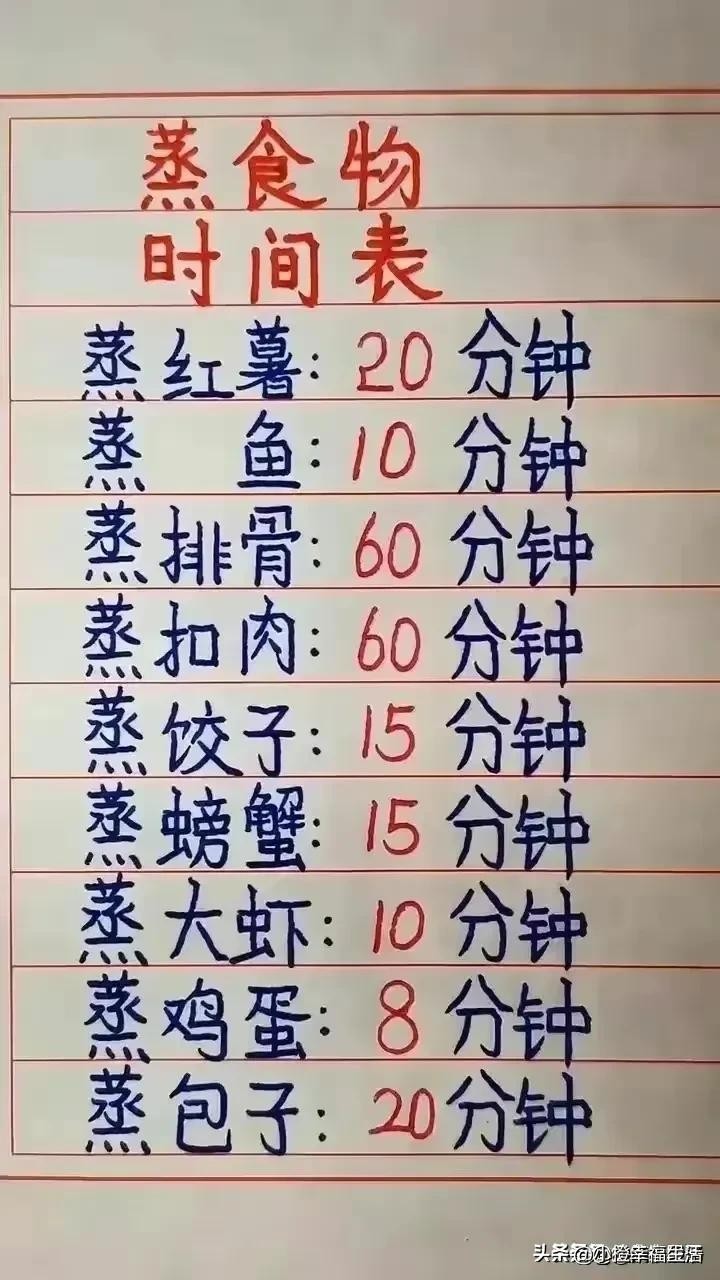 蒸食物
时间表
蒸红薯：20分钟
蒸 鱼：10分钟
蒸排骨：60分钟
蒸扣肉：60分钟
蒸饺子：15分钟
蒸螃蟹：15分钟
蒸大虾：10分钟
蒸鸡蛋：8分钟
蒸包子：20分钟
头条
@小橙幸福生活